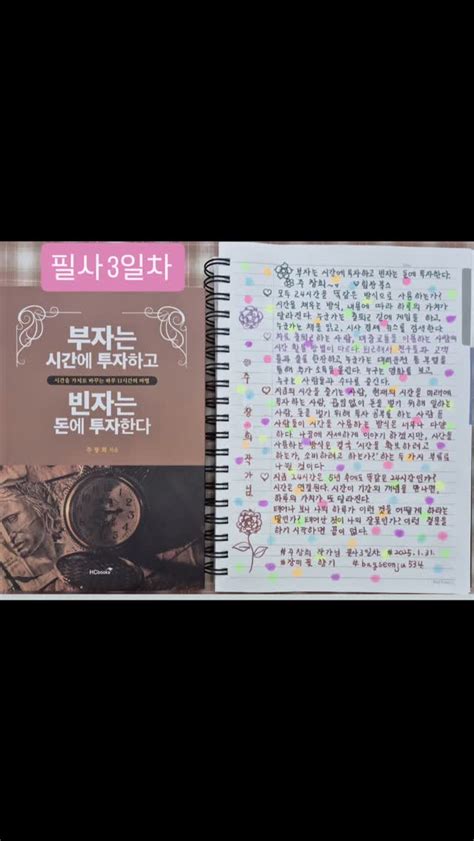 필사3일차
부자는
시간에 투자하고
시간을 가치로 바꾸는 하루 11시간의 비밀
빈자는
돈에 투자한다
주창희 지음
HCbooks
부자는 시간에 투자하고 빈자는 돈에 투자한다.
주창희~
♡ 모두 24시간을 똑같은 방식으로 사용하는가?
시간을 채우는 방식, 내용에 따라 하루의 가치가
달라진다. 누군가는 출퇴근 길에 게임을 하고,
누군가는 책을 읽고, 시사 경제 뉴스를 검색한다
자료 활용하는 사람, 대중교통을 이용하는 사람의
시간 활용 방법이 다르다 퇴근해서 친구들과
들과 술을 한잔하고, 누군가는 대리운전 등 부업을
하여 추가 소득을 올린다. 누구는 영화를 보고,
누구는 사람들과 수다로 즐긴다.
♡ 지금의 시간을 즐기는 사람, 현재의 시간을 미래에
투자하는 사람, 끊임없이 돈을 벌기 위해 일하는
사람, 돈을 벌기 위해 투자 공부를 하는 사람 등
사람들이 시간을 사용하는 방식은 너무나 다양
하다. 나중에 자세하게 이야기 하겠지만, 시간을
사용하는 방식은 결국 '시간을 확보하려고
하는가, 소비하려고 하는가?'하는 두 가지 부류로
나뉠 것이다
♡ 지금 24시간은 5년 후에도 똑같은 24시간인가?
시간은 연결된다. 시간이 기간의 개념을 만나면,
하루의 가치가 또 달라진다.
태어나 보니 나의 하루가 이런 것을 어떻게 하라는
말인가? 태어난 것이 나의 잘못인가? 이런 질문을
하기 시작하면 끝이 없다.
#주창희 작가님 필사3일차 #2025.1.31.
#장미꽃 향기 #bagseonju534
주창희작가님